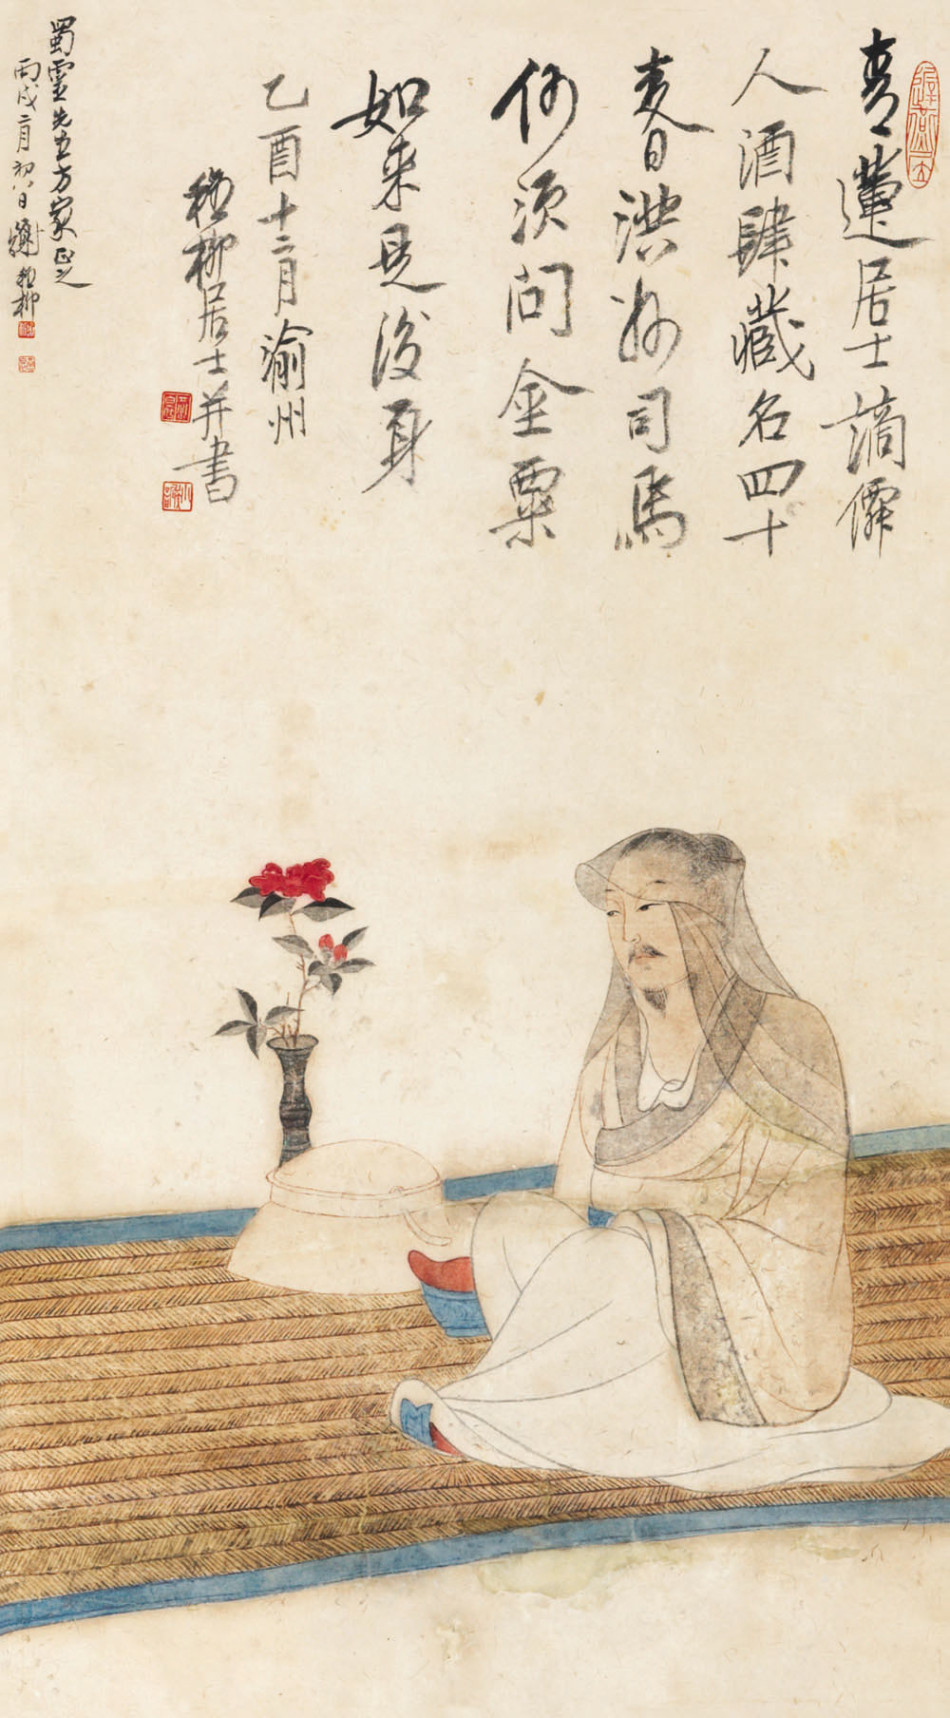 青蓮居士謫僊
人酒肆藏名四十
春洪州司馬
何須問金粟
如来是後身
乙酉十二月渝州
稚柳居士并書
蜀靈先生方家正之
丙戌二月初八日謝稚柳